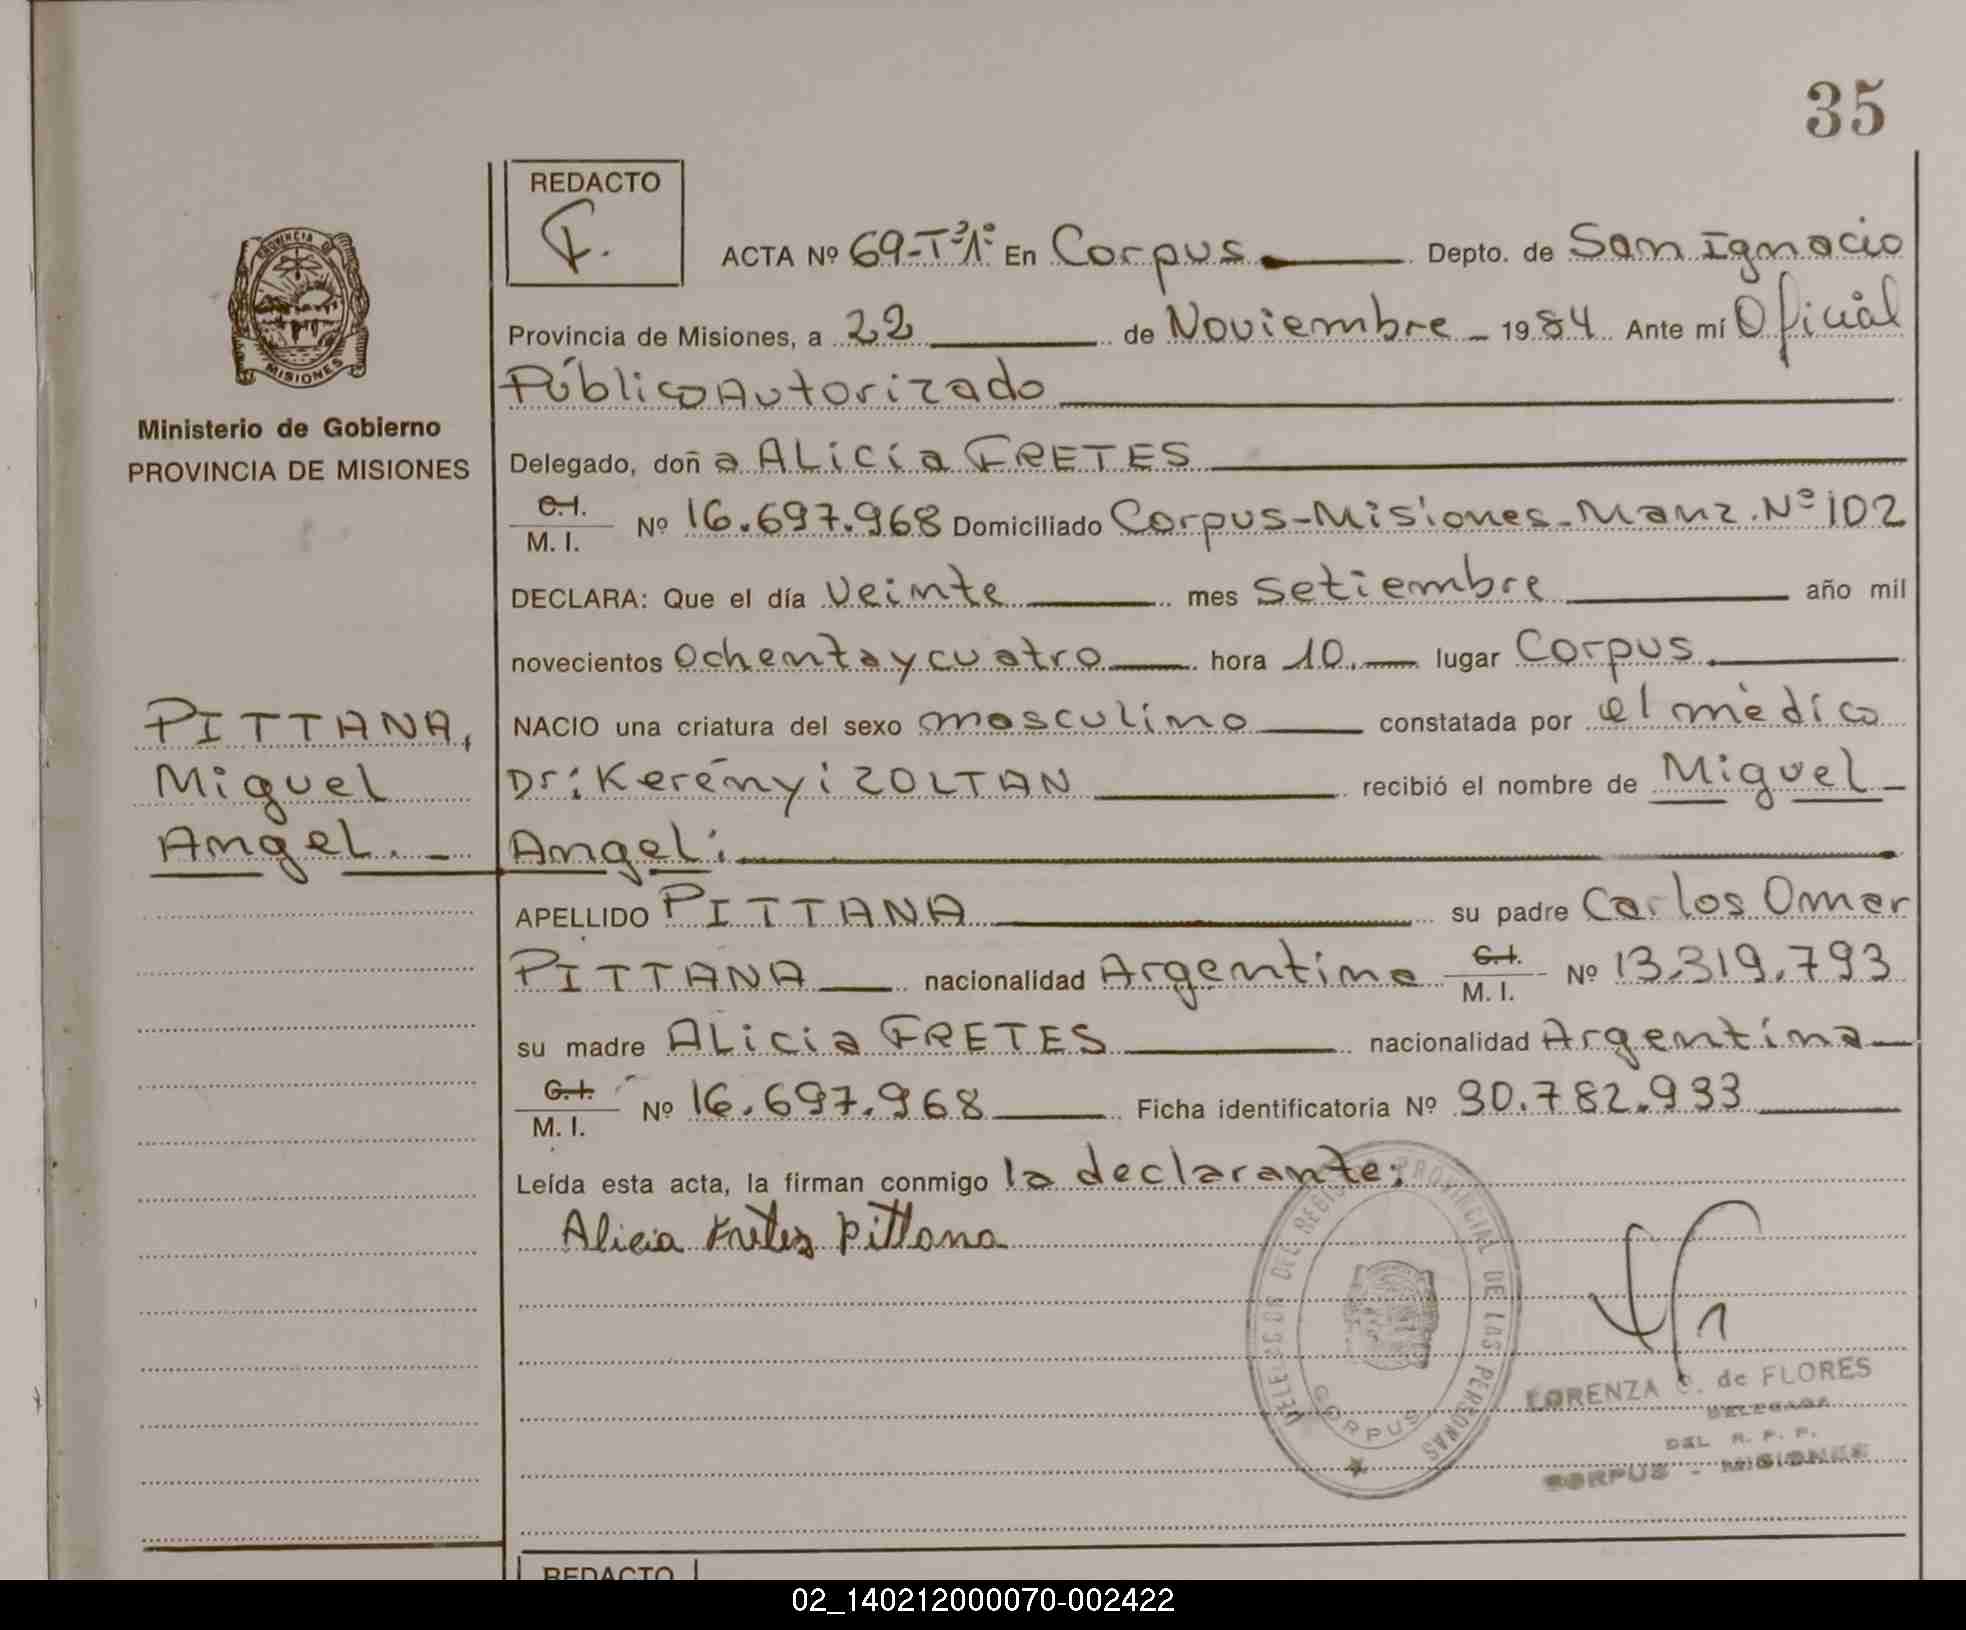 35
REDACTO
F.
ACTA Nº 69-Tº1º En Corpus Depto. de San Ignacio
Provincia de Misiones, a 22 de Noviembre 1984 Ante mí Oficial
Público Autorizado
PROVINCIA DE
MISIONES
Ministerio de Gobierno
PROVINCIA DE MISIONES
Delegado, doña ALicia FRETES
C.I.
M. I. Nº 16.697.968 Domiciliado Corpus-Misiones-Manz.Nº102
DECLARA: Que el día veinte mes setiembre año mil
novecientos ochenta y cuatro hora 10. lugar Corpus
PITTANA,
Miguel
Angel.
NACIO una criatura del sexo masculino constatada por el mèdico
Dr: Kerényi ZOLTAN recibió el nombre de Miguel
Angel:
APELLIDO PITTANA su padre Carlos Omar
PITTANA nacionalidad Argentino C.I. M. I. Nº 13.319.793
su madre ALicia FRETES nacionalidad Argentina
C.I.
M. I. Nº 16.697.968 Ficha identificatoria Nº 30.782.933
Leída esta acta, la firman conmigo la declarante;
Alicia Fretes Pittana
DELEGACION DEL REGISTRO PROVINCIAL DE LAS PERSONAS
CORPUS
LORENZA C. de FLORES
DELEGADA
DEL R. P. P.
CORPUS - MISIONES
REDACTO
02_140212000070-002422